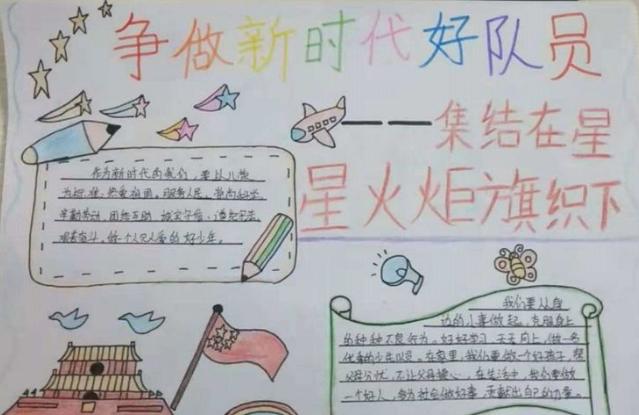 争做新时代好队员
——集结在星
星火火炬旗织下
作为新时代的我们，要从小做
为标准，热爱祖国，服务人民，崇尚科学
辛勤劳动，团结互助，诚实守信，遵纪守法
艰苦奋斗，做一个人见人爱的好少年。
我们要从身
边的小事做起，克服身上
的种种不良行为，好好学习，天天向上，做一名
优秀的少年队员，在家里，我们要做一个好孩子，帮
父母分忧，不让父母操心，在生活中，我们要做
一个好人，多为社会做好事，贡献出自己的力量。